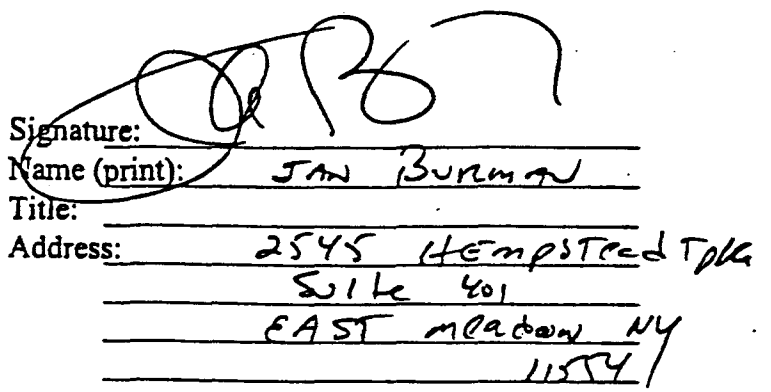 Signature:
Name (print): JAN BURMAN
Title:
Address: 2545 HEmpsTead Tpke
Suite 401
EAST meadow NY
11554